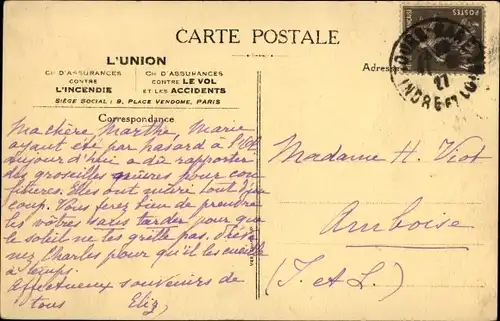 CARTE POSTALE
L'UNION
Cie D'ASSURANCES CONTRE L'INCENDIE
Cie D'ASSURANCES CONTRE LE VOL ET LES ACCIDENTS
SIÈGE SOCIAL : 9, PLACE VENDOME, PARIS
Correspondance
Adresse
POSTES
INDRE-ET-LOIRE
27
Ma chère Marthe, Marie
ayant été par hasard à
aujourd'hui a dû rapporter
des groseilles mûres pour con-
fitures. Elles ont mûri tout d'un
coup. Vous ferez bien de prendre
les vôtres sans tarder pour que
le soleil ne les grille pas. Préve-
nez Charles pour qu'il les cueille
à temps.
Affectueux souvenirs de
tous Eliz,
Madame H. Viot
Amboise
(I. et L.)